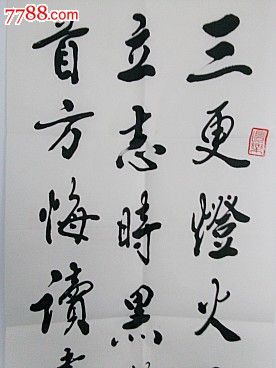 7788.com
三更燈火
立志時黑
首方悔讀